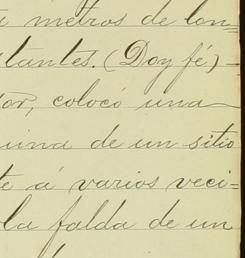 metros de lon=
tantes. (Doy fé)-
tor, colocó una
uina de un sitio
te á varios veci=
la falda de un